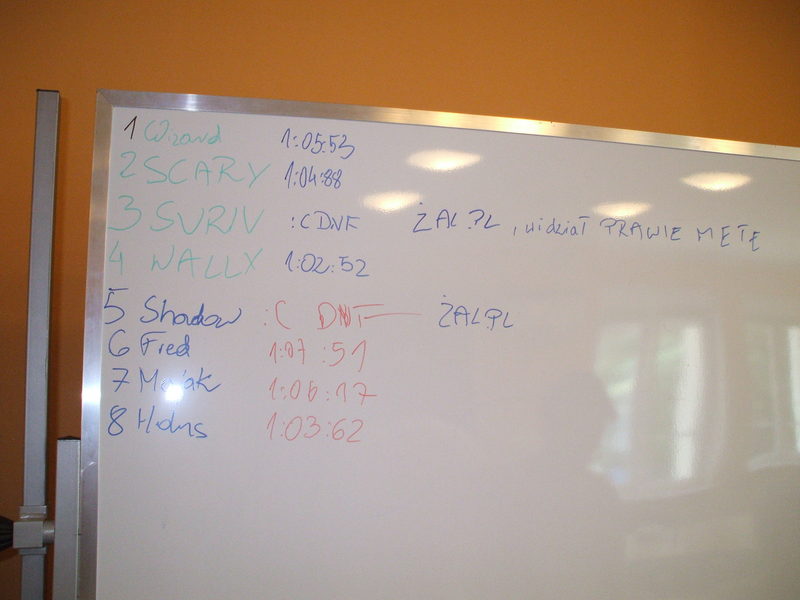 1 Wizard 1:05:53
2 SCARY 1:04:88
3 SURIV :C DNF ŻAL.PL, widział PRAWIE METĘ
4 WALLY 1:02:52
5 Shadow :C DNF ŻAL.PL
6 Fred 1:07:51
7 1:06:17
8 1:03:62